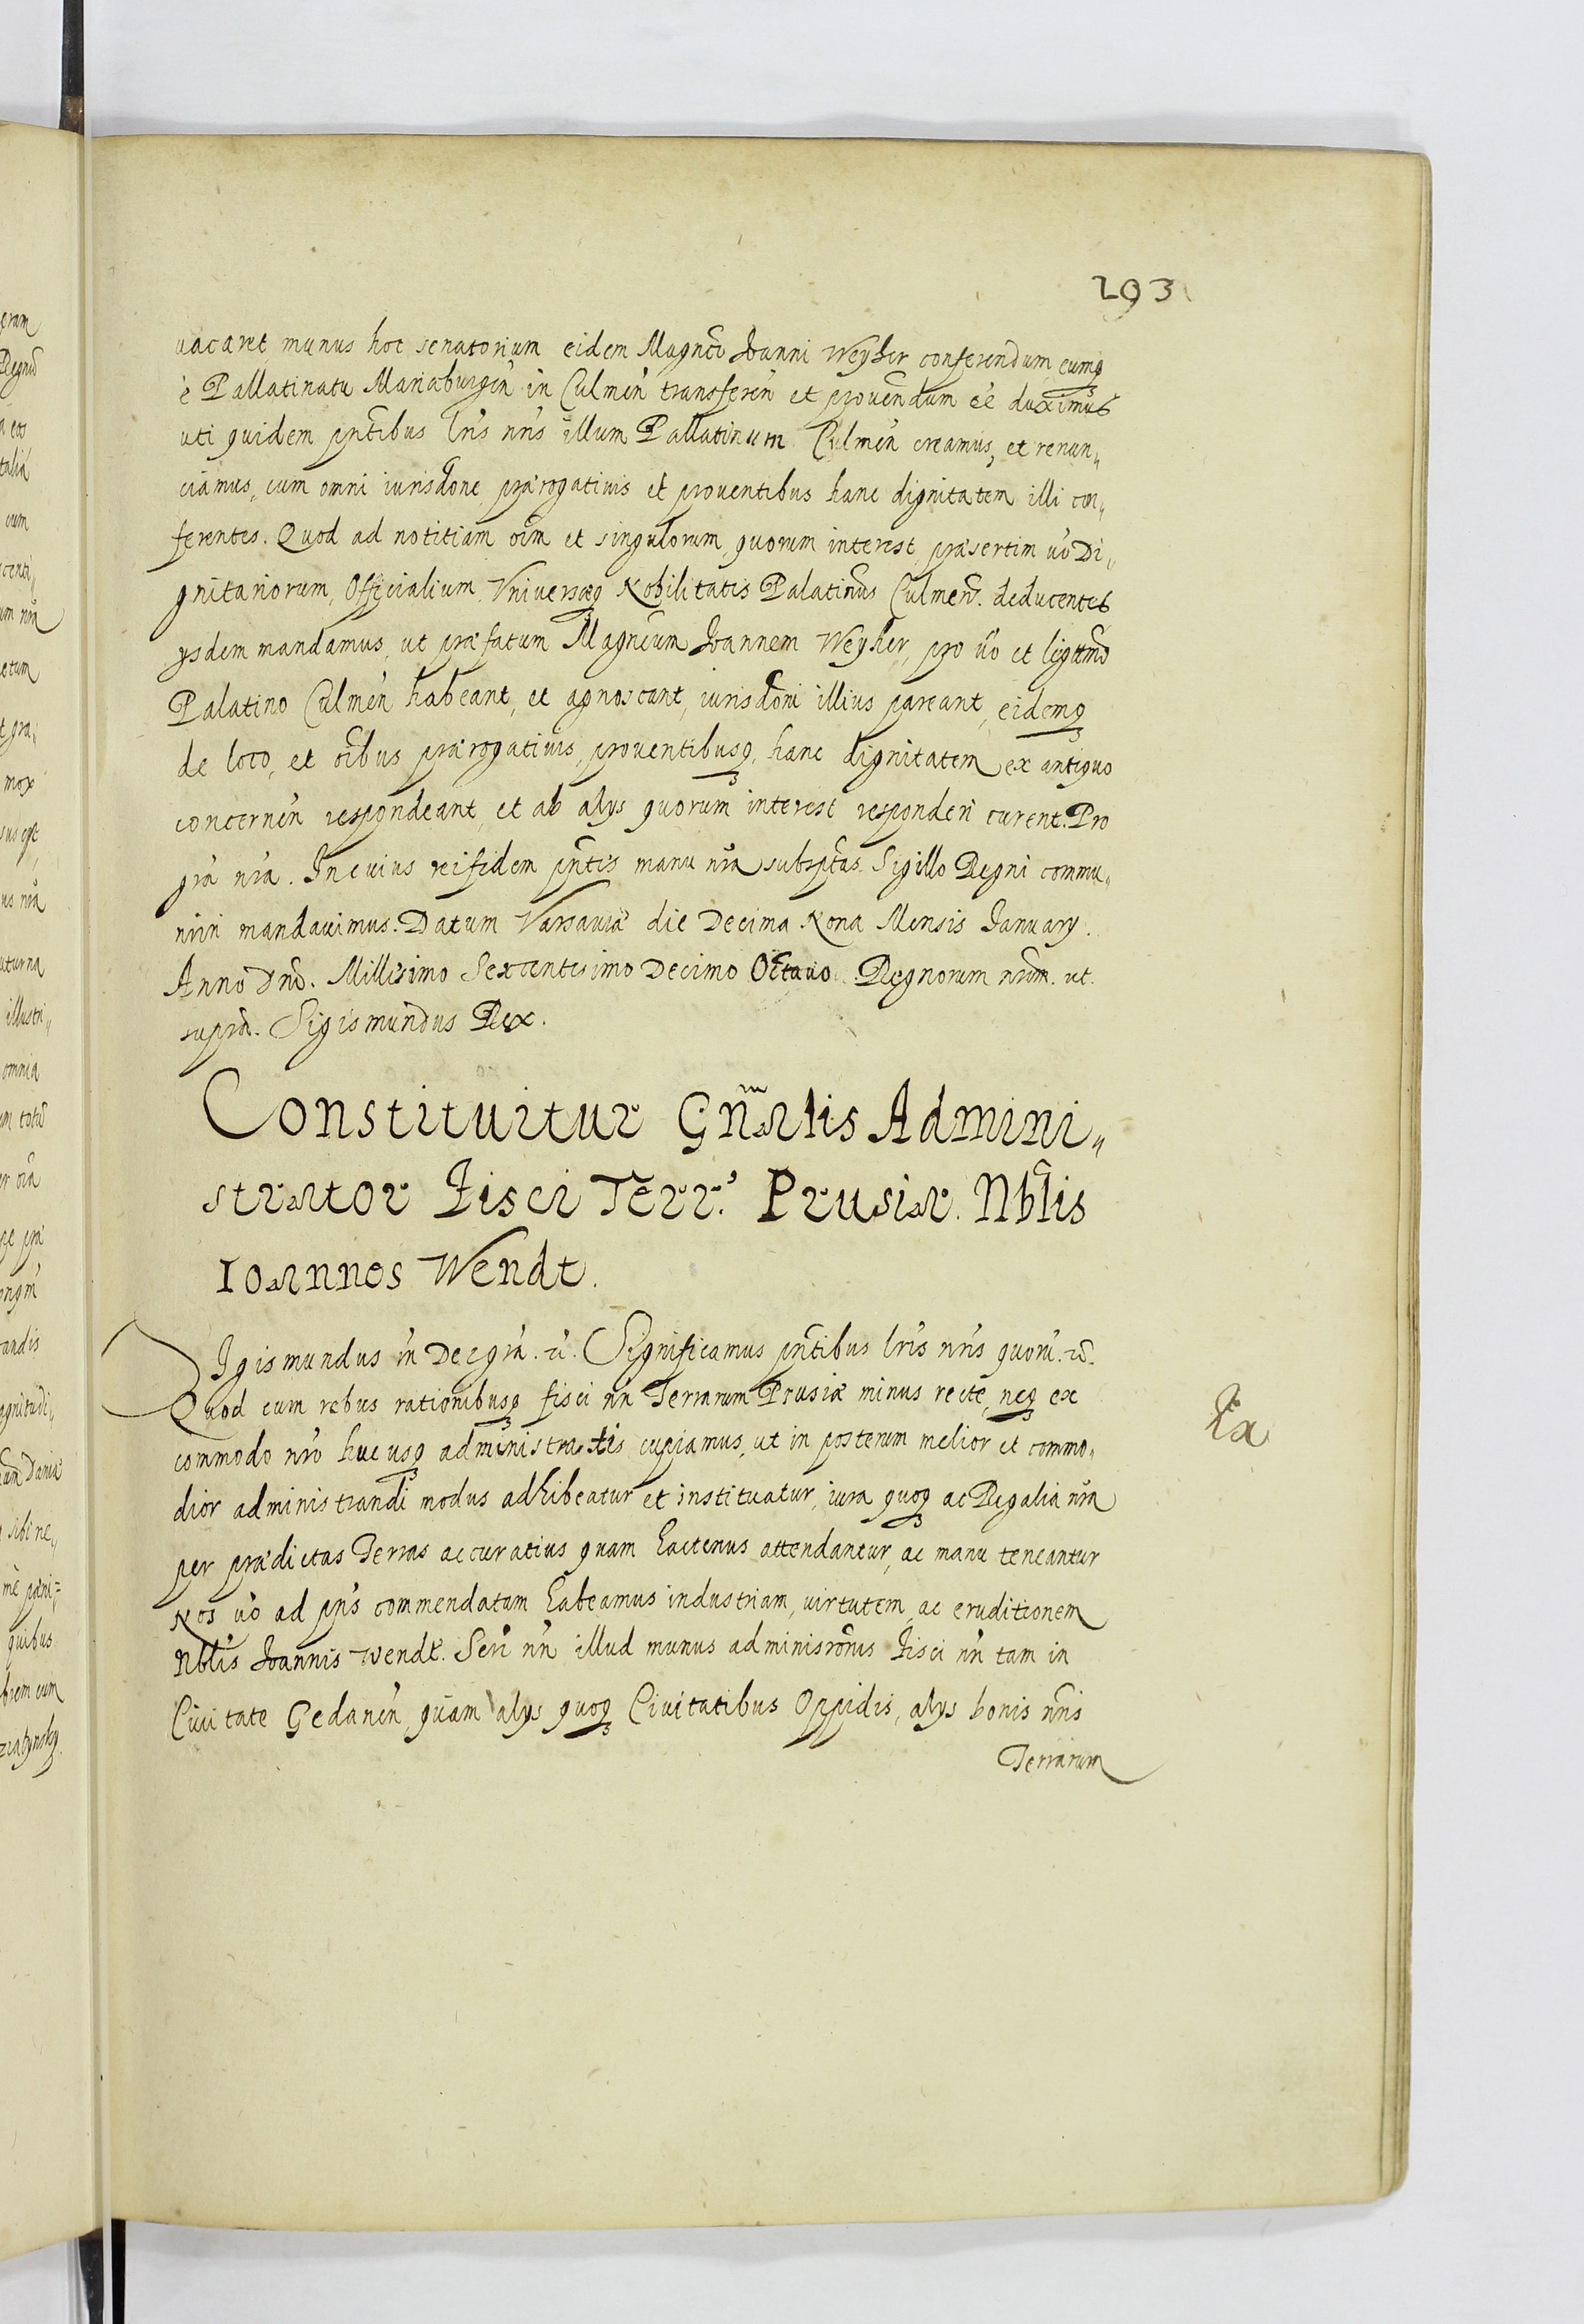 293
vacaret munus hoc senatorium eidem Magnco Joanni Weyher conferendum eumq3
è Pallatinatu Mariaburgen̄ in Culmen̄ transferen̄ et prouendum ēe duximus
uti quidem pn̄tibus lr̄is nr̄is illum Pallatinum Culmen̄ creamus, et renun„
ciamus, cum omni iurisdōne prærogatiuis et prouentibus hanc dignitatem illi con„
ferentes. Quod ad notitiam oīm et singulorum, quorum interest, præsertim v̄o Di„
gnitariorum, Officialium Vniversæq3 Nobilitatis Palatinūs Culmen̄. deducentes
ysdem mandamus, ut præfatum Magncum Joannem Weyher, pro v̄o et ligttmo
Palatino Culmen̄ habeant, et agnoscant, iurisdōni illius pareant, eidemq3
de loco, et oībus prærogatiuis, prouentibusq3, hanc dignitatem ex antiquo
concernen̄ respondeant, et ab alys quorum interest responderi curent. Pro
grā nr̄a. In cuius rei fidem pn̄tis manu nr̄a subsptas Sigillo Regni commu„
niri mandauimus. Datum Varsauiæ die Decima Nona Mensis January.
Anno Dn̄i. Millisimo Sexcentesimo Decimo Octauo Regnorum nrōm. ut.
supra. Sigismundus Rex.
Constituitur Gn̄alis Admini„
strator Fisci Terr. Prusiæ. Nblis
Ioannes Wendt.
Sigismundus in Dei grā. etc. Significamus pn̄tibus lr̄is nr̄is quorū. etc.
Quod cum rebus rationibusq3 fisci nr̄i Terrarum Prusiæ minus recte, neq3 ex
commodo nr̄o huc usq3 administratis cupiamus, ut in posterum melior et commo„
dior administrandi modus adhibeatur et instituatur, iura quoq3 ac Regalia nr̄a
per prædictas Terras accuratius quam hactenus attendantur, ac manu teneantur
Nos v̄o ad pn̄s commendatam habeamus industriam, virtutem, ac eruditionem
Nblis Joannis Wendt. Seri nr̄i illud munus adminisrōnis Fisci nr̄i tam in
Ciuitate Gedanen̄, quam alys quoq3 Ciuitatibus Oppidis, alys bonis nr̄is
Terrarum